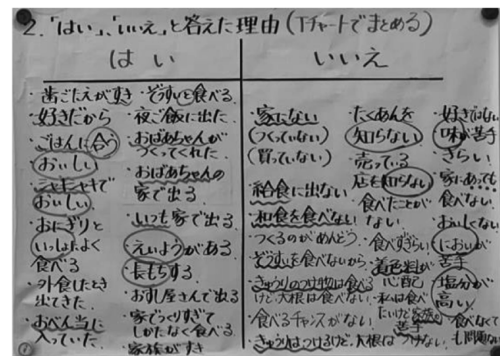 2.「はい」、「いいえ」と答えた理由(Tチャートでまとめる)
はい
・歯ごたえがすき
・好きだから
・ごはんに合う
おいしい
・シャキシャキで
おいしい
・おにぎりと
いっしょによく
食べる
・外食したとき
出てきた
・おべん当に
入っていた
・ぞうすいと食べる
・夜ご飯に出た
・おばあちゃんが
つくってくれた
・おばあちゃんの
家で出る
・いつも家で出る
・えいようがある
・長もちする
・おすし屋さんで出る
・家でつくりすぎて
しかたなく食べる
・家族がすき
いいえ
・家にない
(つくっていない)
(買っていない)
・給食に出ない
・和食を食べない
・つくるのがめんどう
・ぞうすいを食べないから
・きゅうりのつけ物は食べる
けど、大根は食べない
・食べるチャンスがない
・きゅうりはつけるけど、大根は
つけない
・たくあんを
知らない
・売っている
店を知らない
・食べたことが
ない
・食べずぎらい
・着色料が
心配
・私は食べ
たいけど家族が
苦手
・好きではない
・味が苦手
・きらい
・家にあっても
食べない
・おいしくない
・においが
苦手
・塩分が
高い
・食べなくて
も問題ない